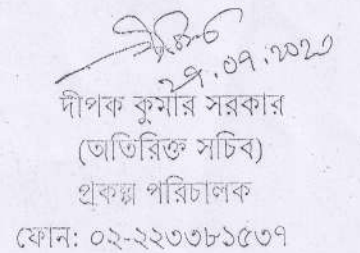 ২৭.০৭.২০২৩
দীপক কুমার সরকার
(অতিরিক্ত সচিব)
প্রকল্প পরিচালক
ফোন: ০২-২২৩৩৮১৫৩৭